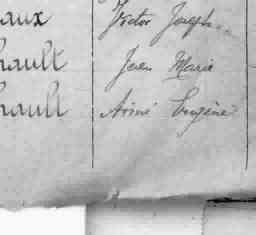 aux Victor Joseph
hault Jean Marie
hault Aimé Eugène